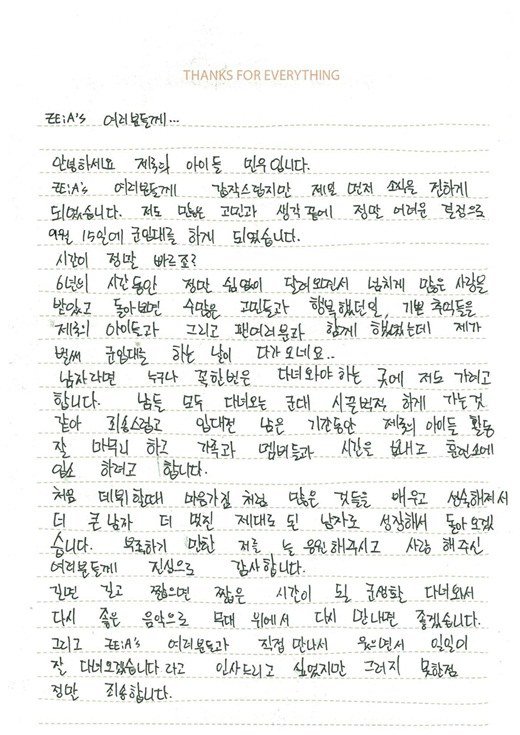 THANKS FOR EVERYTHING
ZE:A's 여러분들께...
안녕하세요 제국의 아이들 민우입니다.
ZE:A's 여러분들께 갑작스럽지만 제일 먼저 소식을 전하게
되었습니다. 저도 많은 고민과 생각 끝에 정말 어려운 결정으로
9월 15일에 군입대를 하게 되었습니다.
시간이 정말 빠르죠?
6년의 시간동안 정말 쉼없이 달려오면서 넘치게 많은 사랑을
받았고 돌아보면 수많은 고민들과 행복했던일, 기쁜 추억들을
제국의 아이들과 그리고 팬여러분과 함께 했었는데 제가
벌써 군입대를 하는 날이 다가오네요..
남자라면 누구나 꼭한번은 다녀와야 하는 곳에 저도 가려고
합니다. 남들 모두 다녀오는 군대 시끌벅적 하게 가는것
같아 죄송스럽고 입대전 남은 기간동안 제국의 아이들 활동
잘 마무리 하고 가족과 멤버들과 시간을 보내고 훈련소에
입소 하려고 합니다.
처음 데뷔할때 마음가짐 처럼 많은 것들을 배우고 성숙해져서
더 큰남자 더 멋진 제대로 된 남자로 성장해서 돌아오겠
습니다. 부족하기 만한 저를 늘 응원해주시고 사랑 해주신
여러분들께 진심으로 감사합니다.
길면 길고 짧으면 짧은 시간이 될 군생활 다녀와서
다시 좋은 음악으로 무대 위에서 다시 만나면 좋겠습니다.
그리고 ZE:A's 여러분과 직접 만나서 웃으면서 일일이
잘 다녀오겠습니다 라고 인사드리고 싶었지만 그러지 못한점
정말 죄송합니다.